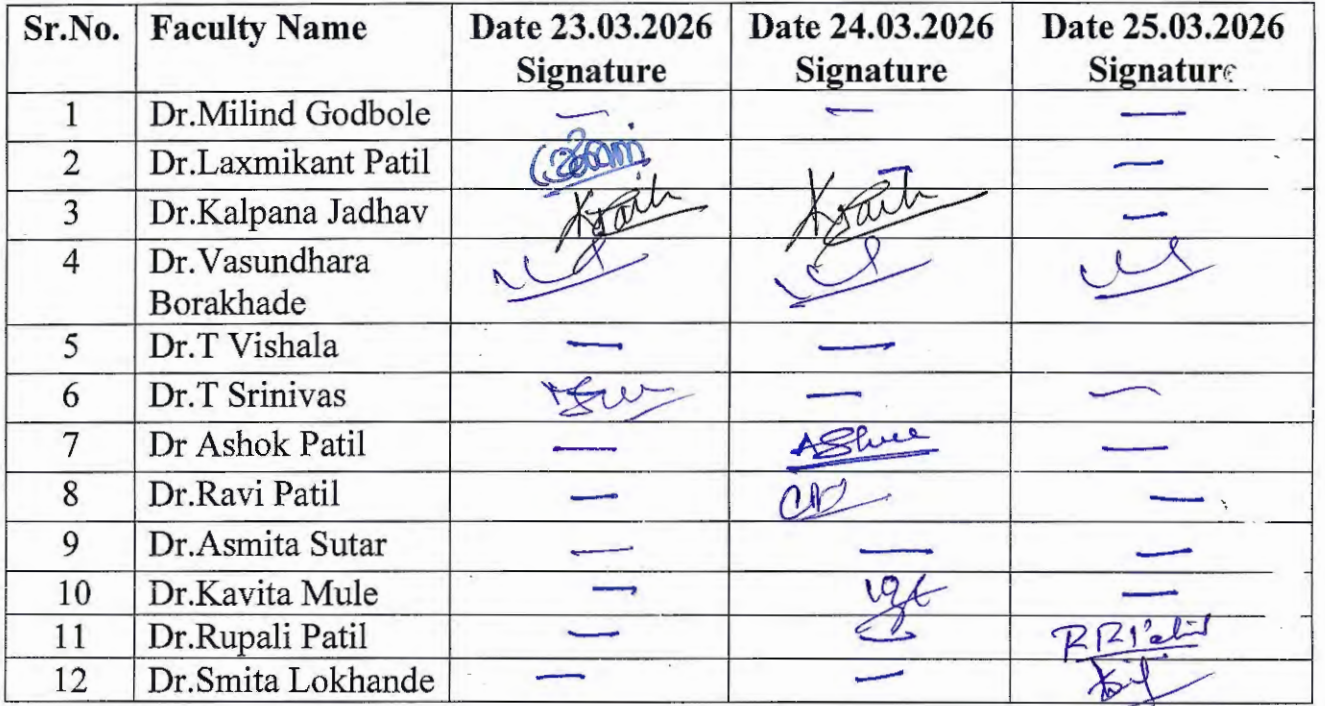 Sr.No. Faculty Name Date 23.03.2026 Date 24.03.2026 Date 25.03.2026
Signature Signature Signature
1 Dr.Milind Godbole — — —
2 Dr.Laxmikant Patil — —
3 Dr.Kalpana Jadhav —
4 Dr.Vasundhara
Borakhade
5 Dr.T Vishala — —
6 Dr.T Srinivas — —
7 Dr Ashok Patil — —
8 Dr.Ravi Patil — —
9 Dr.Asmita Sutar — — —
10 Dr.Kavita Mule — —
11 Dr.Rupali Patil — — RRPatil
12 Dr.Smita Lokhande — —